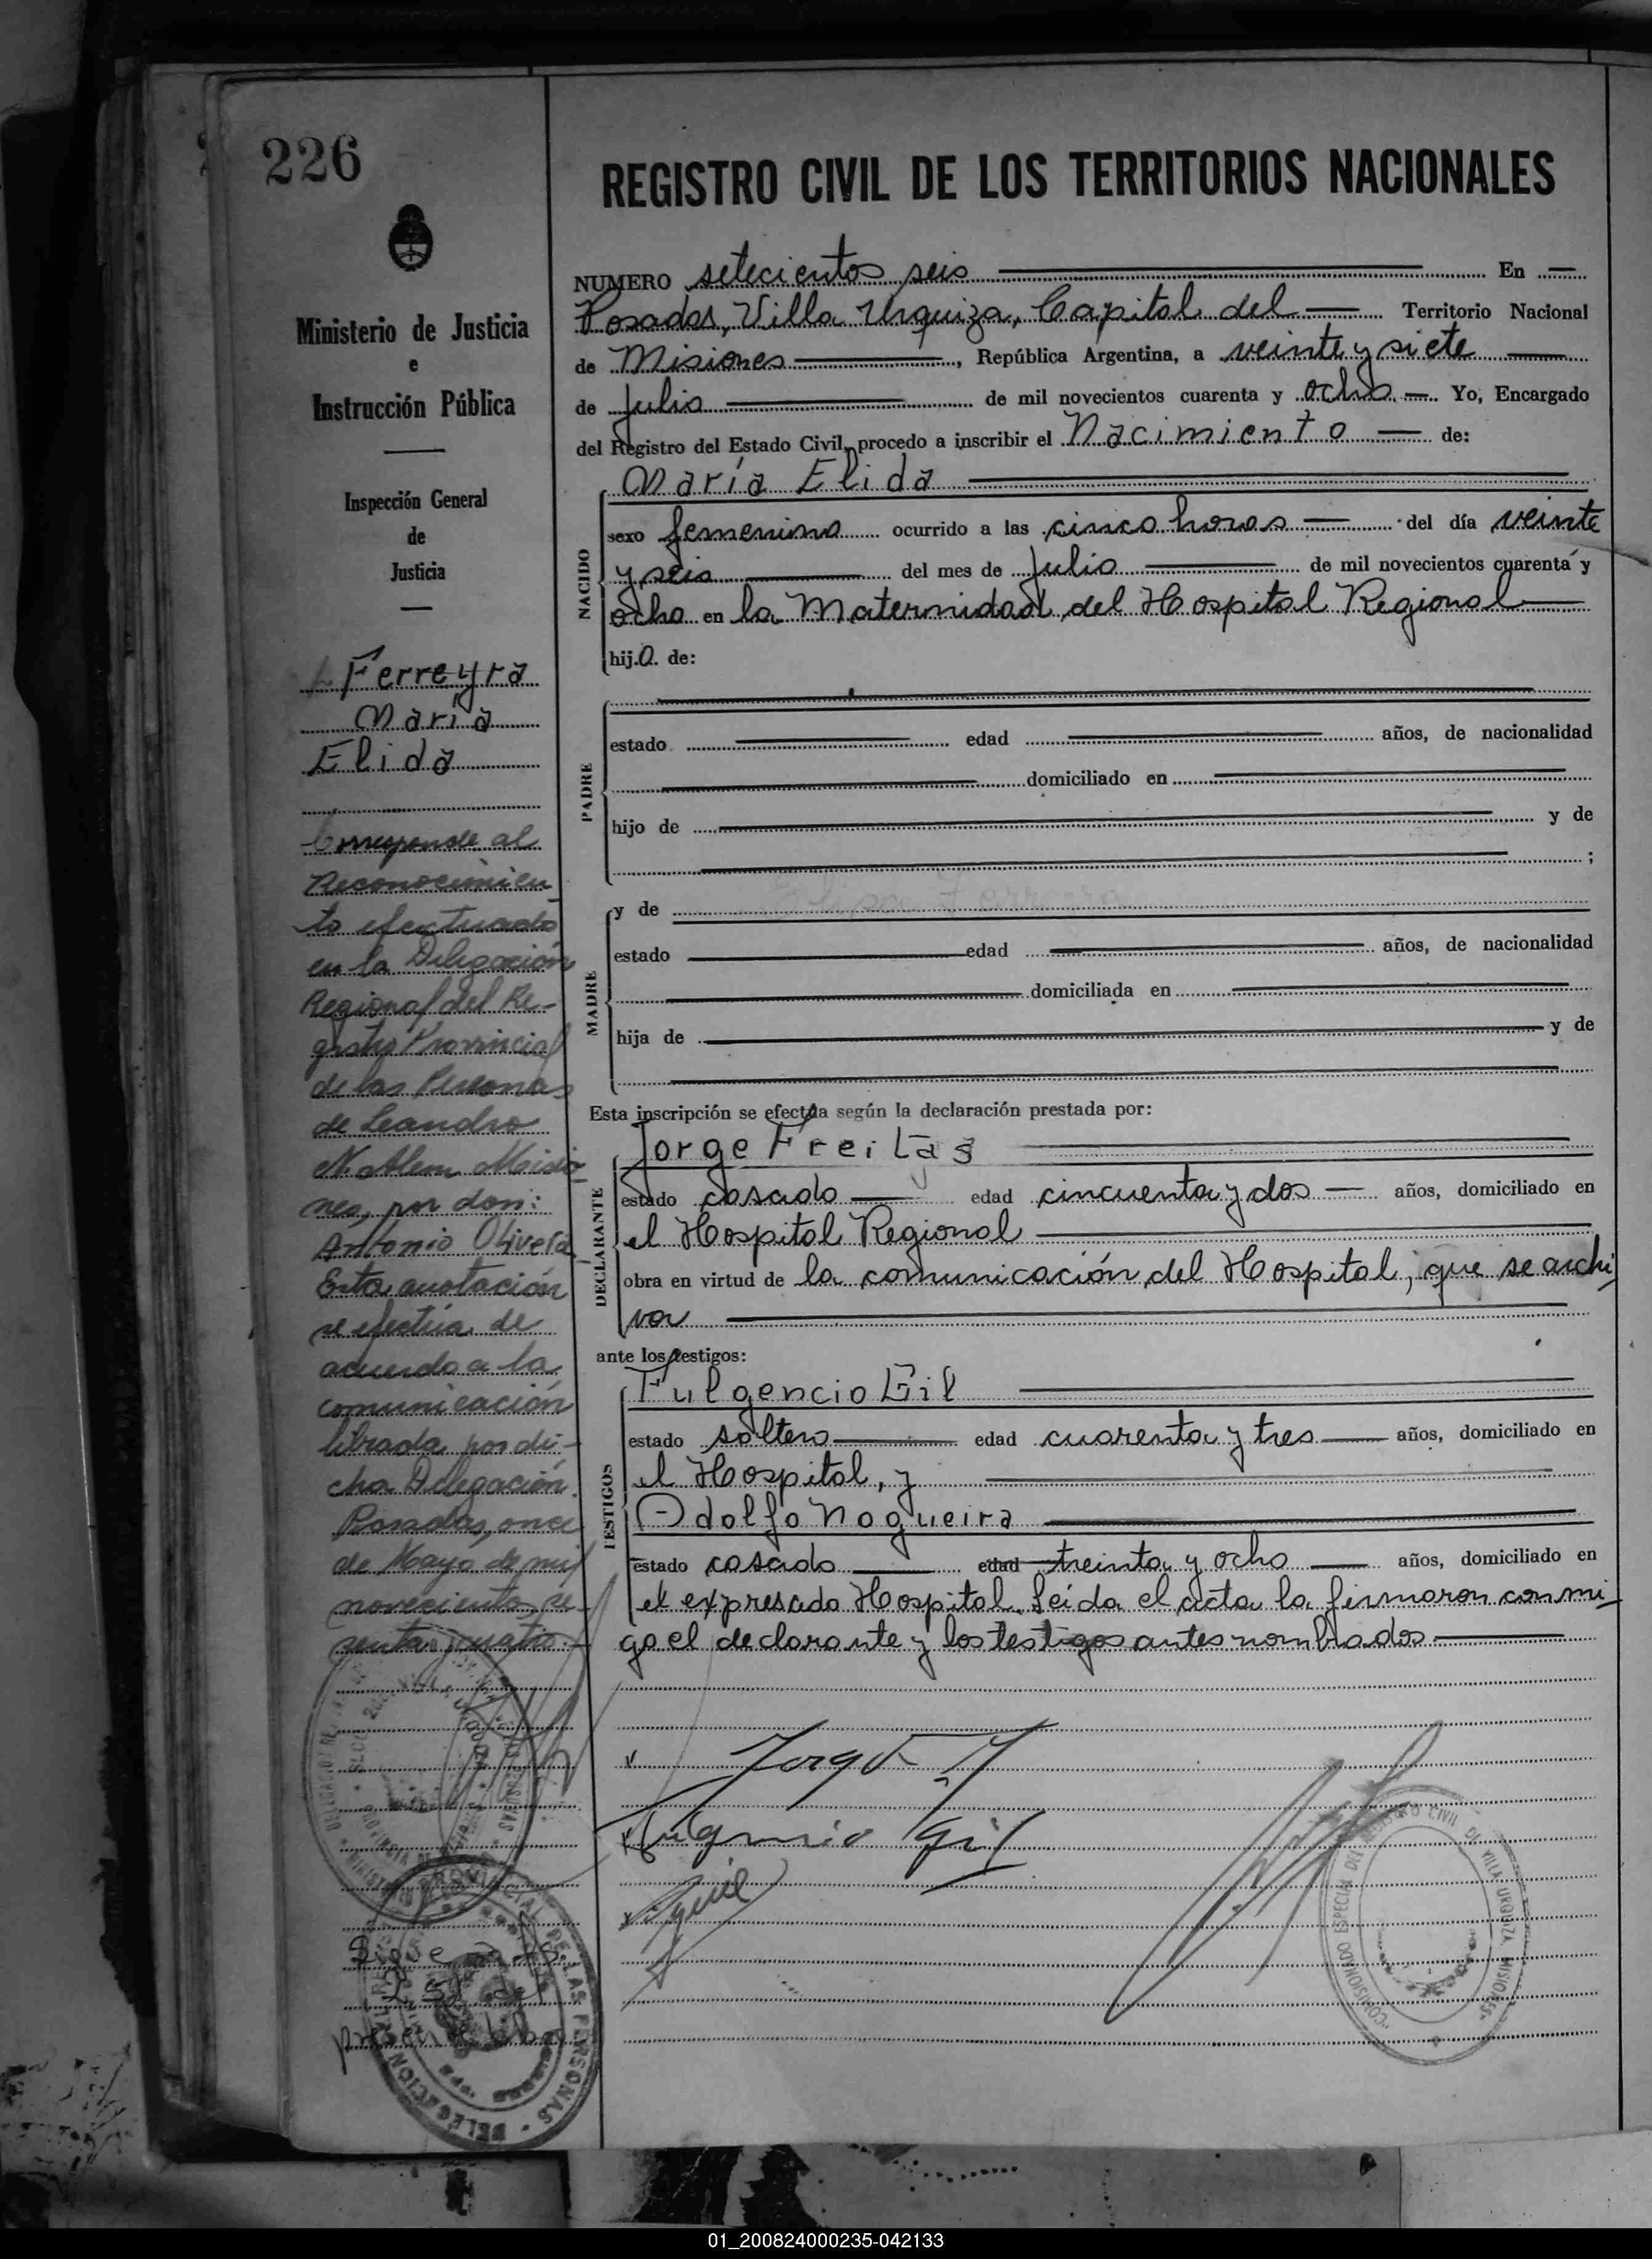 226
Ministerio de Justicia
e
Instrucción Pública
Inspección General
de
Justicia
Ferreyra
María
Elida
Corresponde al
Reconocimien
to efectuado
en la Delegación
Regional del Re-
gistro Provincial
de las Personas
de Leandro
N. Alem Misio
nes, por don:
Antonio Olivera
Esta anotación
se efectúa de
acuerdo a la
comunicación
librada por di-
cha Delegación.
Posadas, once
de Mayo de mil
novecientos se
senta y cuatro.-
Sigue
REGISTRO CIVIL DE LOS TERRITORIOS NACIONALES
NUMERO setecientos seis En
Posadas, Villa Urquiza, Capital del Territorio Nacional
de Misiones, República Argentina, a veinte y siete
de Julio de mil novecientos cuarenta y ocho Yo, Encargado
del Registro del Estado Civil, procedo a inscribir el Nacimiento de:
NACIDO
María Elida
sexo femenino ocurrido a las cinco horas del día veinte
y seis del mes de Julio de mil novecientos cuarenta y
ocho en la Maternidad del Hospital Regional
hija de:
PADRE
estado edad años, de nacionalidad
domiciliado en
hijo de y de
;
MADRE
y de
estado edad años, de nacionalidad
domiciliada en
hija de y de
Esta inscripción se efectúa según la declaración prestada por:
DECLARANTE
Jorge Freitas
estado casado edad cincuenta y dos años, domiciliado en
el Hospital Regional
obra en virtud de la comunicación del Hospital, que se archi
va
ante los testigos:
TESTIGOS
Fulgencio Gil
estado soltero edad cuarenta y tres años, domiciliado en
el Hospital, y
Adolfo Nogueira
estado casado edad treinta y ocho años, domiciliado en
el expresado Hospital. Leída el acta la firmaron conmi-
go el declarante y los testigos antes nombrados
COMISIONADO ESPECIAL DEL REGISTRO CIVIL DE VILLA URQUIZA MISIONES
DE LAS PERSONAS - DELEGACION
01_200824000235-042133